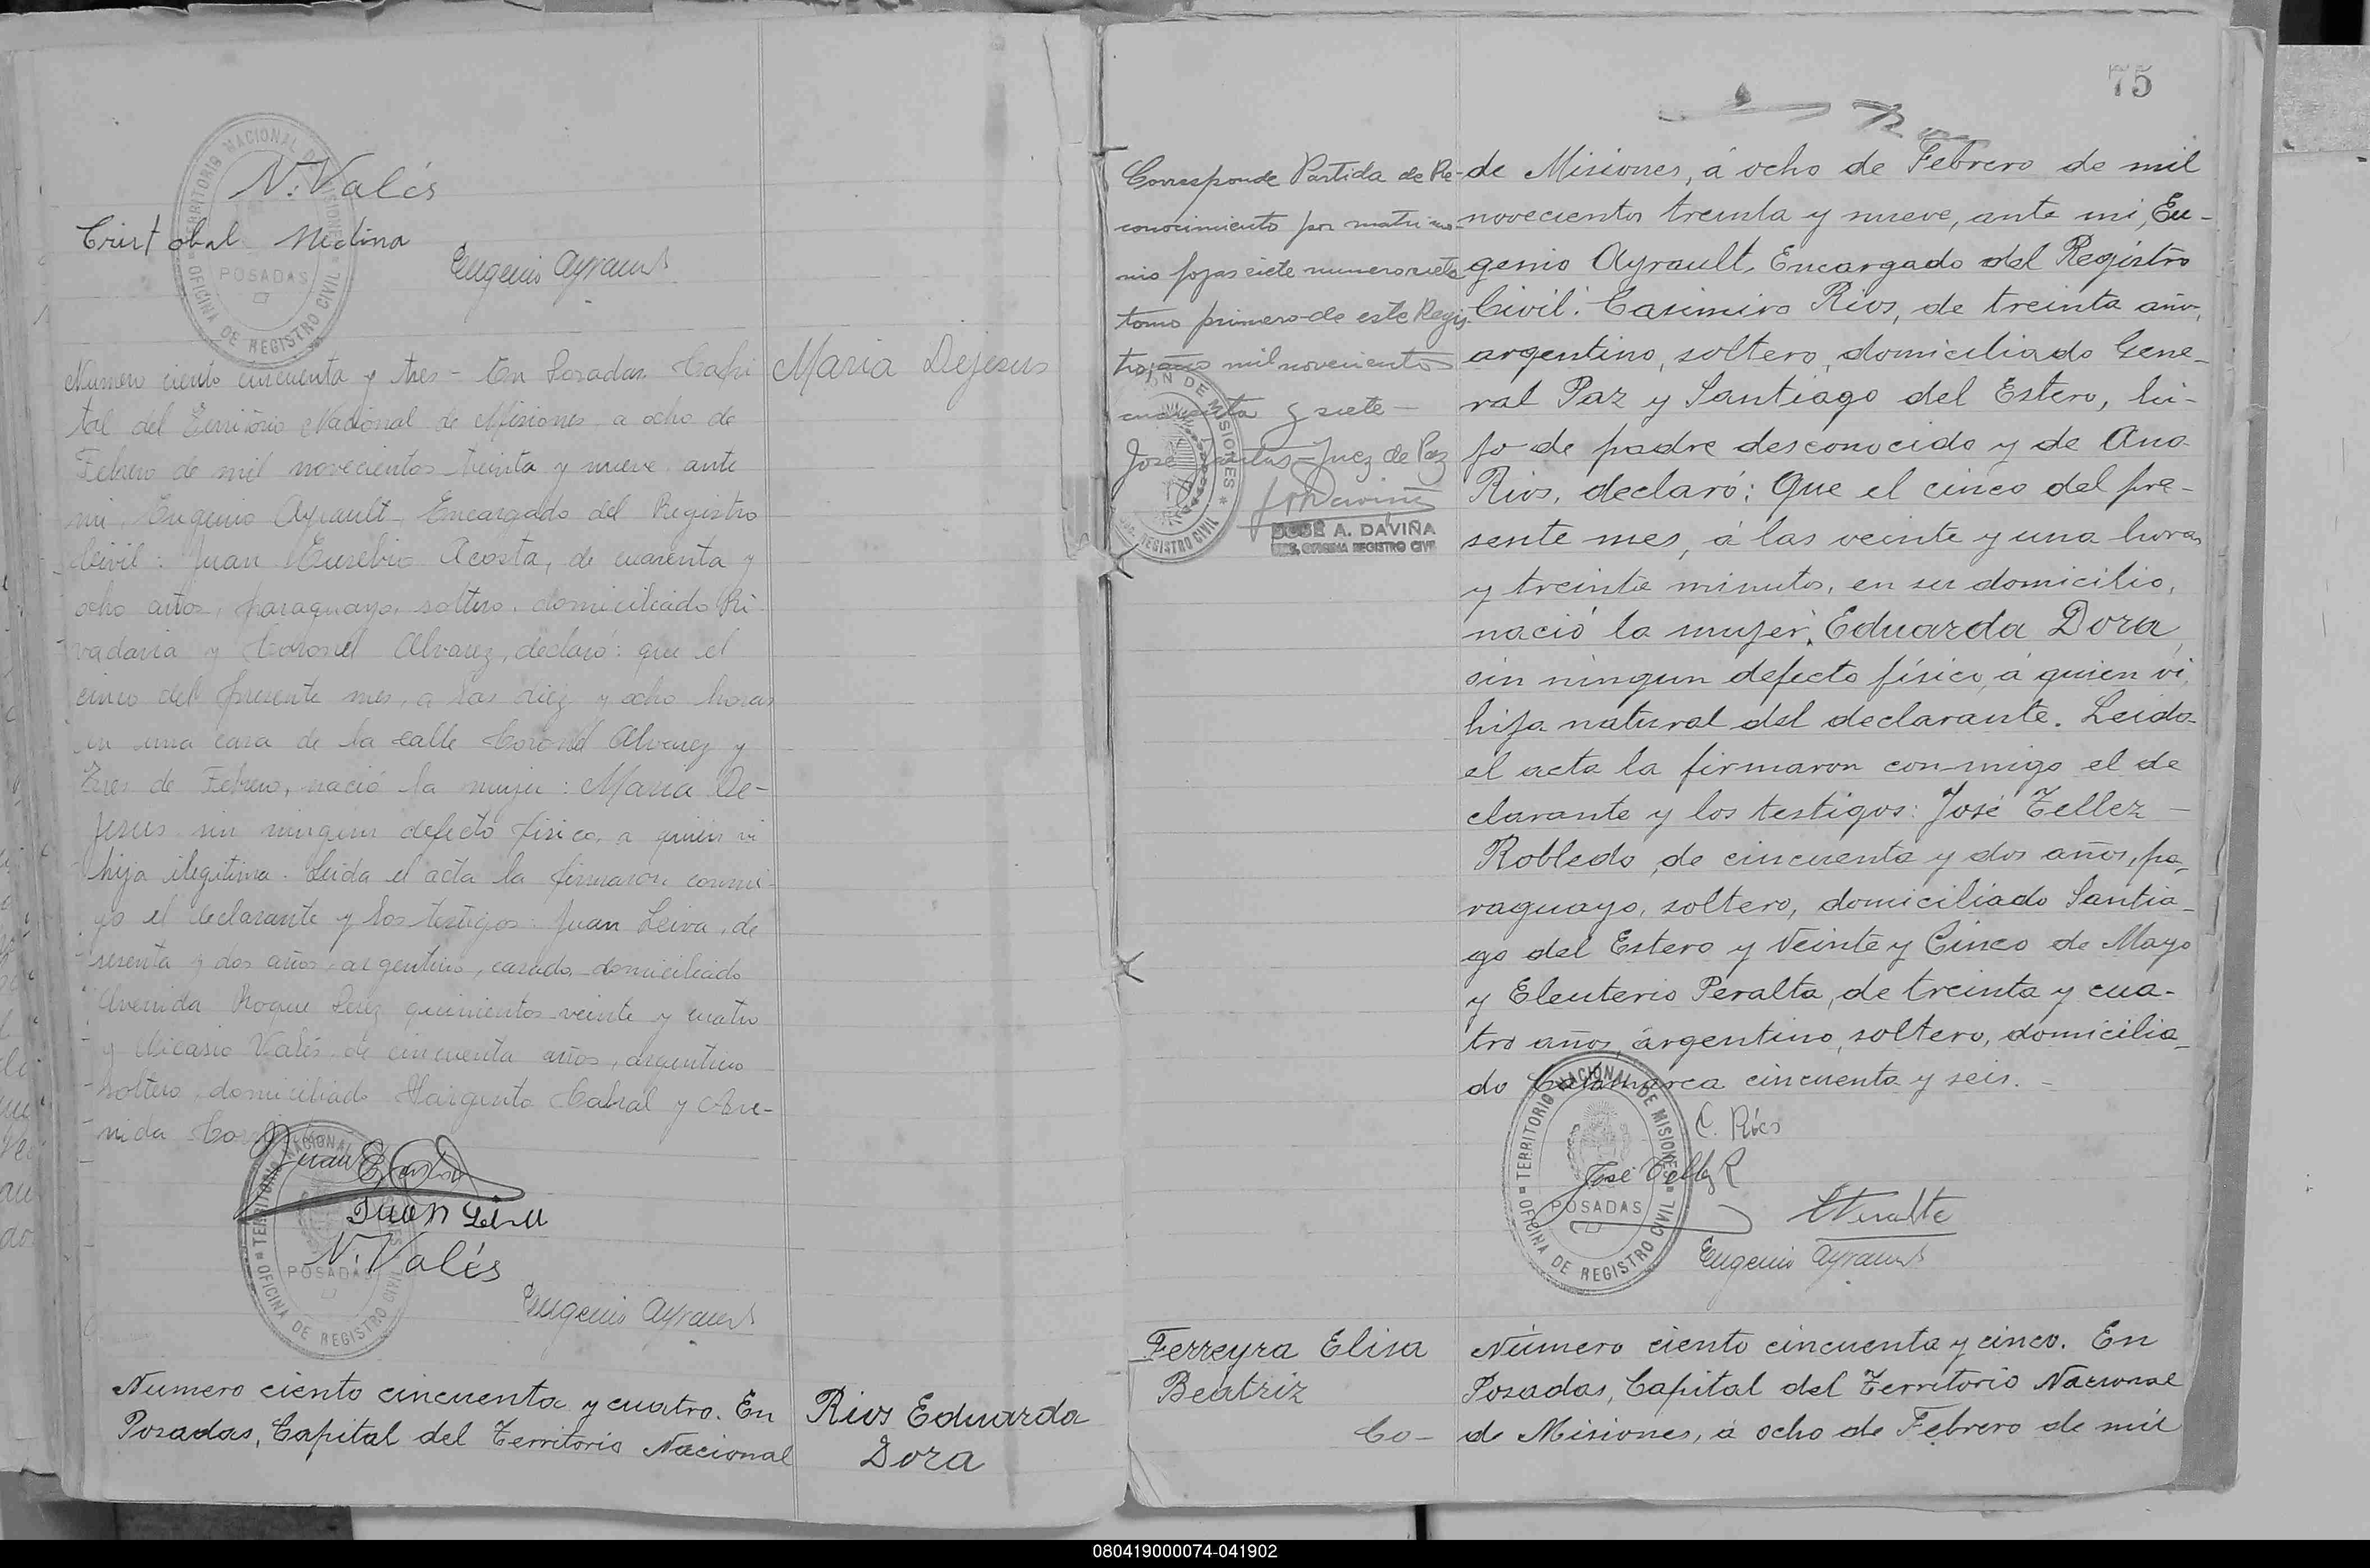 N. Valés
Cristobal Medina
Eugenio Ayrault
TERRITORIO NACIONAL DE MISIONES
POSADAS
OFICINA DE REGISTRO CIVIL
Maria Dejesus
Numero ciento cincuenta y tres - En Posadas Capi
tal del Territorio Nacional de Misiones a ocho de
Febrero de mil novecientos treinta y nueve ante
mi, Eugenio Ayrault, Encargado del Registro
Civil: Juan Eusebio Acosta, de cuarenta y
ocho años, paraguayo, soltero, domiciliado Ri
vadavia y Coronel Alvarez, declaró: que el
cinco del presente mes, a las diez y ocho horas
en una casa de la calle Coronel Alvarez y
Tres de Febrero, nació la mujer: Maria De-
jesus sin ningun defecto fisico, a quien vi
hija ilegitima. Leida el acta la firmaron conmi-
go el declarante y los testigos: Juan Leiva, de
sesenta y dos años, argentino, casado, domiciliado
Avenida Roque Perez quinientos veinte y cuatro
y Nicasio Valés, de cincuenta años, argentino
soltero, domiciliado Sargento Cabral y Ave-
nida
Juan
Juan Leiva
N. Valés
Eugenio Ayrault
TERRITORIO NACIONAL
POSADAS
OFICINA DE REGISTRO CIVIL
Numero ciento cincuenta y cuatro. En
Posadas, Capital del Territorio Nacional
Rios Eduarda
Dora
75
Corresponde Partida de Re-
conocimiento por matrimo-
nio fojas siete numero siete
tomo primero de este Regis-
tro, año mil novecientos
cuarenta y siete -
José Juez de Paz
JOSÉ A. DAVIÑA
OFICINA REGISTRO CIVIL
DE MISIONES
REGISTRO CIVIL
de Misiones, á ocho de Febrero de mil
novecientos treinta y nueve, ante mi, Eu-
genio Ayrault, Encargado del Registro
Civil: Casimiro Rios, de treinta años,
argentino, soltero, domiciliado Gene-
ral Paz y Santiago del Estero, hi-
jo de padre desconocido y de Ana
Rios, declaró: Que el cinco del pre-
sente mes, á las veinte y una horas
y treinta minutos, en su domicilio,
nació la mujer, Eduarda Dora,
sin ningun defecto físico, á quien vi,
hija natural del declarante. Leida
el acta la firmaron conmigo el de
clarante y los testigos: José Tellez
Robledo, de cincuenta y dos años, pa-
raguayo, soltero, domiciliado Santia-
go del Estero y Veinte y Cinco de Mayo
y Eleuterio Peralta, de treinta y cua-
tro años, argentino, soltero, domicilia-
do Catamarca cincuenta y seis.
C. Ríos
José Tellez R
EPeralta
Eugenio Ayrault
TERRITORIO NACIONAL DE MISIONES
POSADAS
OFICINA DE REGISTRO CIVIL
Ferreyra Elisa
Beatriz
Co-
Número ciento cincuenta y cinco. En
Posadas, Capital del Territorio Nacional
de Misiones, á ocho de Febrero de mil
080419000074-041902